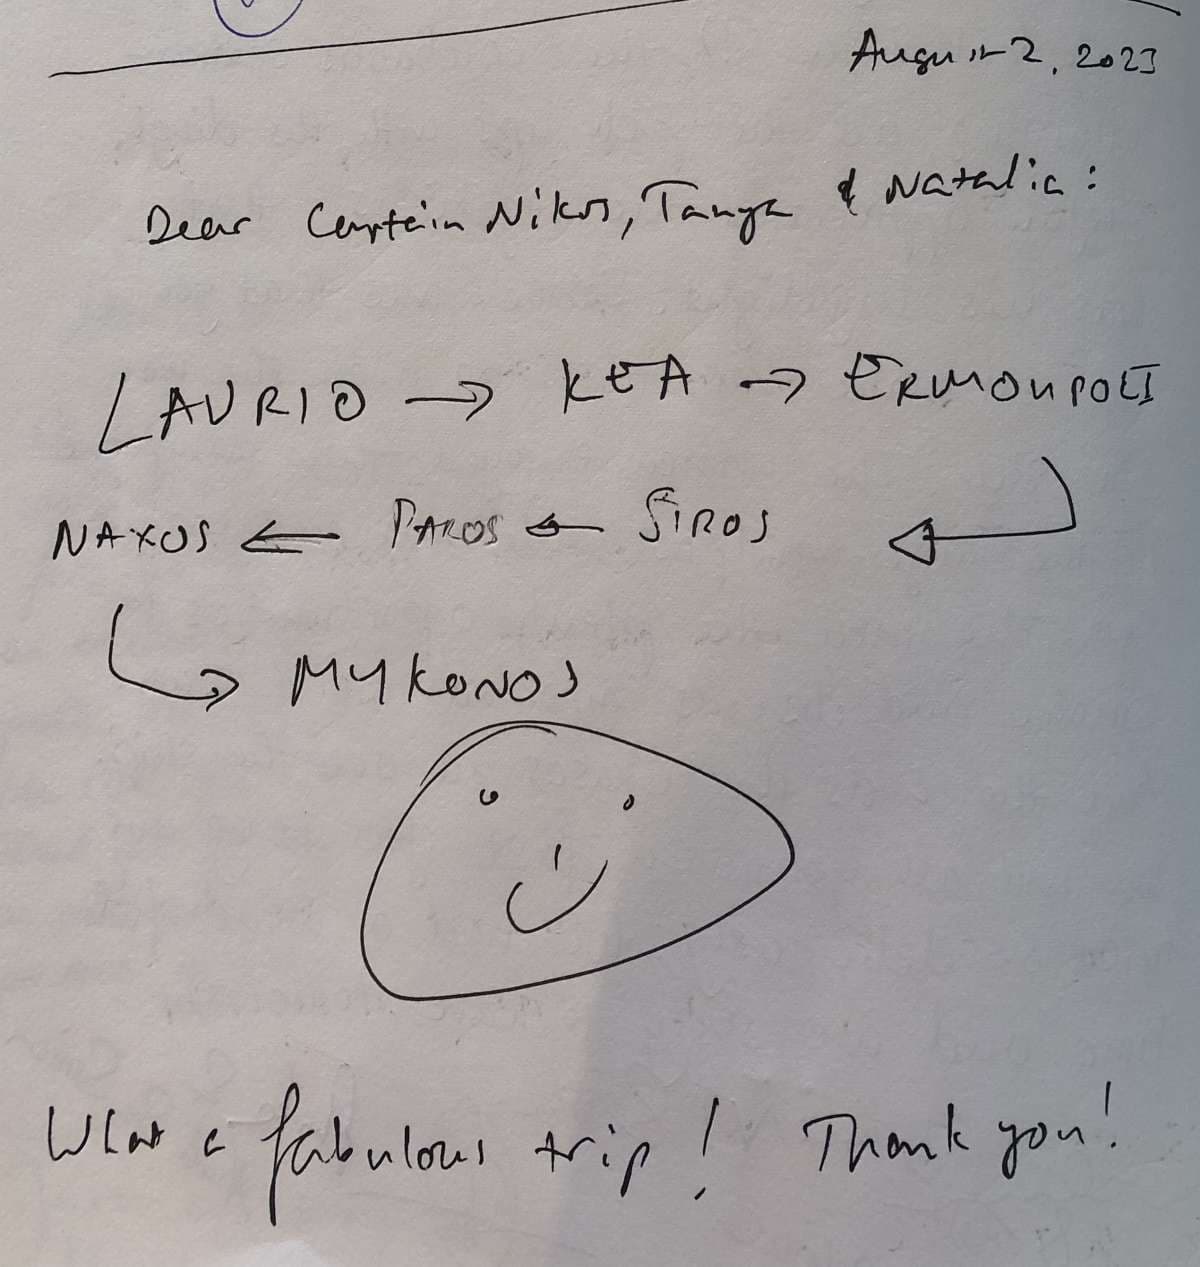 August 2, 2023
Dear Captain Nikos, Tanya & Natalia:
LAVRIO → KEA → ERMOUPOLI
NAXOS ← PAROS ← SIROS
MYKONOS
What a fabulous trip! Thank you!